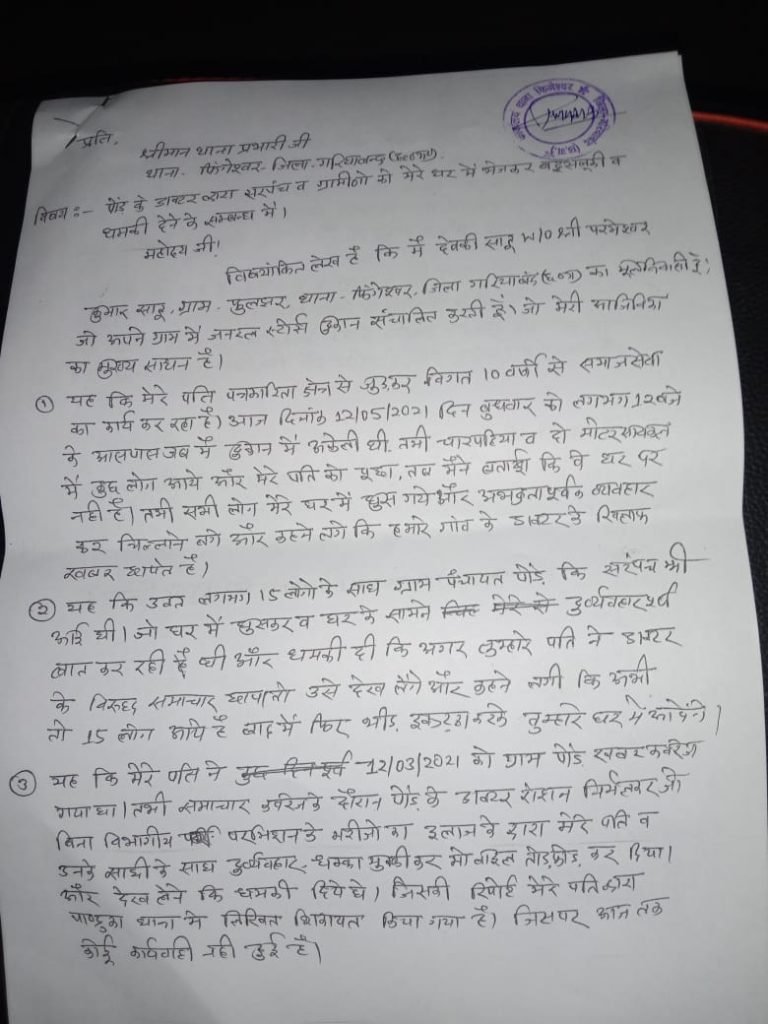 प्रति,
श्रीमान थाना प्रभारी जी
थाना - फिंगेश्वर, जिला - गरियाबन्द (छ०ग०)
विषय :- पोंड़ के डाक्टर द्वारा सरपंच व ग्रामीनो को मेरे घर में भेजकर बदसलूकी व
धमकी देने के सम्बन्ध में।
महोदय जी!
विषयांकित लेख है कि मैं देवकी साहू w/o श्री परमेश्वर
कुमार साहू, ग्राम - फुलझर, थाना - फिंगेश्वर, जिला गरियाबंद (छ०ग०) का मूलनिवासी हूँ।
जो अपने ग्राम में जनरल स्टोर्स दुकान संचालित करती हूँ। जो मेरी आजिविका
का मुख्य साधन है।
① यह कि मेरे पति पत्रकारिता क्षेत्र से जुड़कर विगत 10 वर्षों से समाजसेवा
का कार्य कर रहा है। आज दिनांक 12/05/2021 दिन बुधवार को लगभग 12 बजे
के आसपास जब मैं दुकान में अकेली थी, तभी चारपहिया व दो मोटरसायकल
में कुछ लोग आये और मेरे पति को पूछा, तब मैंने बताई कि वे घर पर
नही है। तभी सभी लोग मेरे घर में घुस गये और अभद्रतापूर्वक व्यवहार
कर चिल्लाने लगे और कहने लगे कि हमारे गांव के डाक्टर के खिलाफ
खबर छापते है।
② यह कि उक्त लगभग 15 लोगो के साथ ग्राम पंचायत पोंड़ कि सरपंच भी
आई थी। जो घर में घुसकर व घर के सामने दुर्व्यवहारपूर्ण
बात कर रही थी और धमकी दी कि अगर तुम्हारे पति ने डाक्टर
के विरुद्ध समाचार छापा तो उसे देख लेंगे और कहने लगी कि अभी
तो 15 लोग आये है बाद में फिर भीड़ इकट्ठा करके तुम्हारे घर में आयेंगे।
③ यह कि मेरे पति ने कुछ दिन पूर्व 12/03/2021 को ग्राम पोंड़ खबर कवरेज
गया था। तभी समाचार कवरेज के दौरान पोंड़ के डाक्टर रोशन निर्मलकर जो
बिना विभागीय परमिशन के मरीजो का इलाज के द्वारा मेरे पति व
उनके साथी के साथ दुर्व्यवहार, धक्का मुक्की कर मोबाइल तोड़फोड़ कर दिया।
और देख लेने कि धमकी दिये थे। जिसकी रिपोर्ट मेरे पति द्वारा
पाण्डुका थाना में लिखित शिकायत किया गया है। जिसपर आज तक
कोई कार्यवाही नही हुई है।